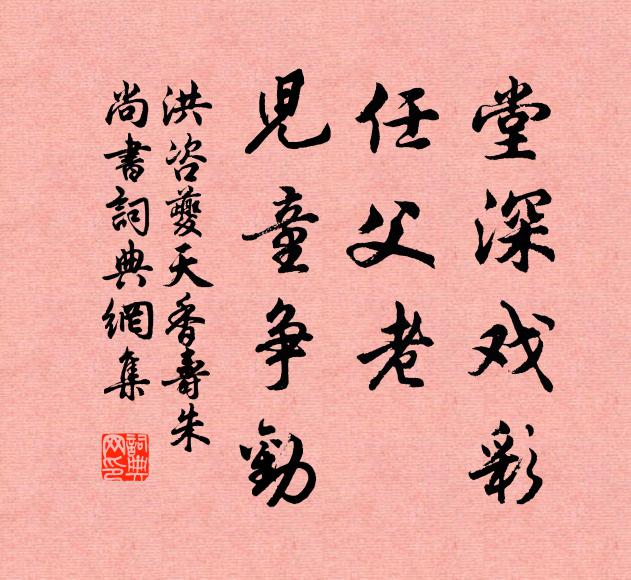 堂深戏彩
任父老
児童争勸
洪咨夔天香壽朱
尚書詞典網集
詞典网印